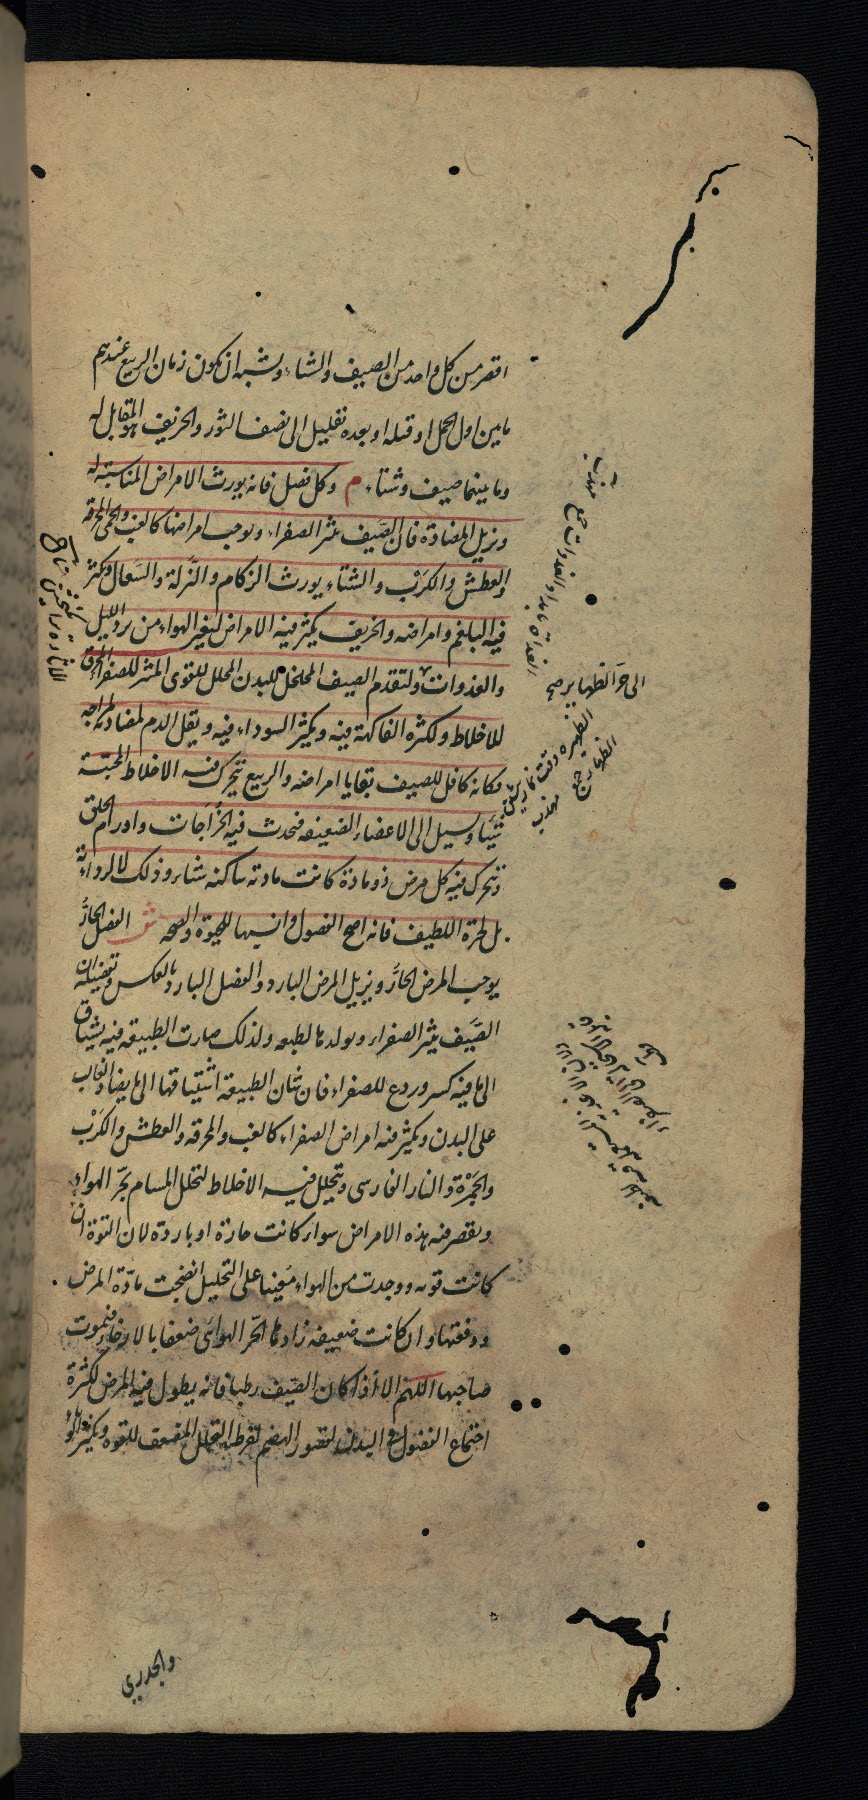 اقصر من كل واحد من الصيف والشتاء ويشبه ان يكون زمان الربيع عندهم
ما بين اول الحمل او قبله او بعده بقليل الى نصف الثور والخريف هو المقابل له
وما بينهما صيف وشتاء م وكل فصل فانه يورث الامراض المناسبة له
ويزيل المضادة فان الصيف يثير الصفراء ويوجب امراضها كالغب والحمى المحرقة
والعطش والكرب والشتاء يورث الزكام والنزلة والسعال ويكثر
فيه البلغم وامراضه والخريف يكثر فيه الامراض لتغير الهواء من برد الليل
والغدوات ولتقدم الصيف المخلخل للبدن المحلل للقوى المثير للصفراء المحرق
للاخلاط ولكثرة الفاكهة فيه ويكثر السوداء فيه ويقل الدم لمضادته لمزاجه
وكانه كافل للصيف بقايا امراضه والربيع يتحرك فيه الاخلاط المحتبسة
شتاء ويسيل الى الاعضاء الضعيفه فيحدث فيه الخراجات واورام الحلق
ويتحرك فيه كل مرض ذو مادة كانت مادته ساكنه شتاء وذلك لا لرداءته
بل لحره اللطيف فانه اصح الفصول وانسبها للحيوة والصحه ش الفصل الحار
يوجب المرض الحار ويزيل المرض البارد والفصل البارد بالعكس وتفصيله ان
الصيف يثير الصفراء ويولدها لطبعه ولذلك صارت الطبيعة فيه يشتاق
الى ما فيه كسر وردع للصفراء فان شان الطبيعة اشتياقها الى ما يضاد الغالب
على البدن ويكثر فيه امراض الصفراء كالغب والمحرقه والعطش والكرب
والجمرة والنار الفارسى ويتحلل فيه الاخلاط لتخلل المسام بحر الهواء
ويقصر فيه هذه الامراض سواء كانت حارة او باردة لان القوة ان
كانت قويه ووجدت من الهواء معينا على التحليل انضجت مادة المرض
ودفعتها وان كانت ضعيفه زادها الحر الهوائى ضعفا بالارخاء فيموت
صاحبها اللهم الا اذا كان الصيف رطبا فانه يطول فيه المرض لكثرة
اجتماع الفضول فى البدن لقصور الهضم لفرط التحلل المضعف للقوة ويكثر
والجدرى
الغداة بامداد الغدوات جمع مهذب
الى حر الظهاير صح
الظهيره وقت نماز پيشين
الظهاير جمع مهذب